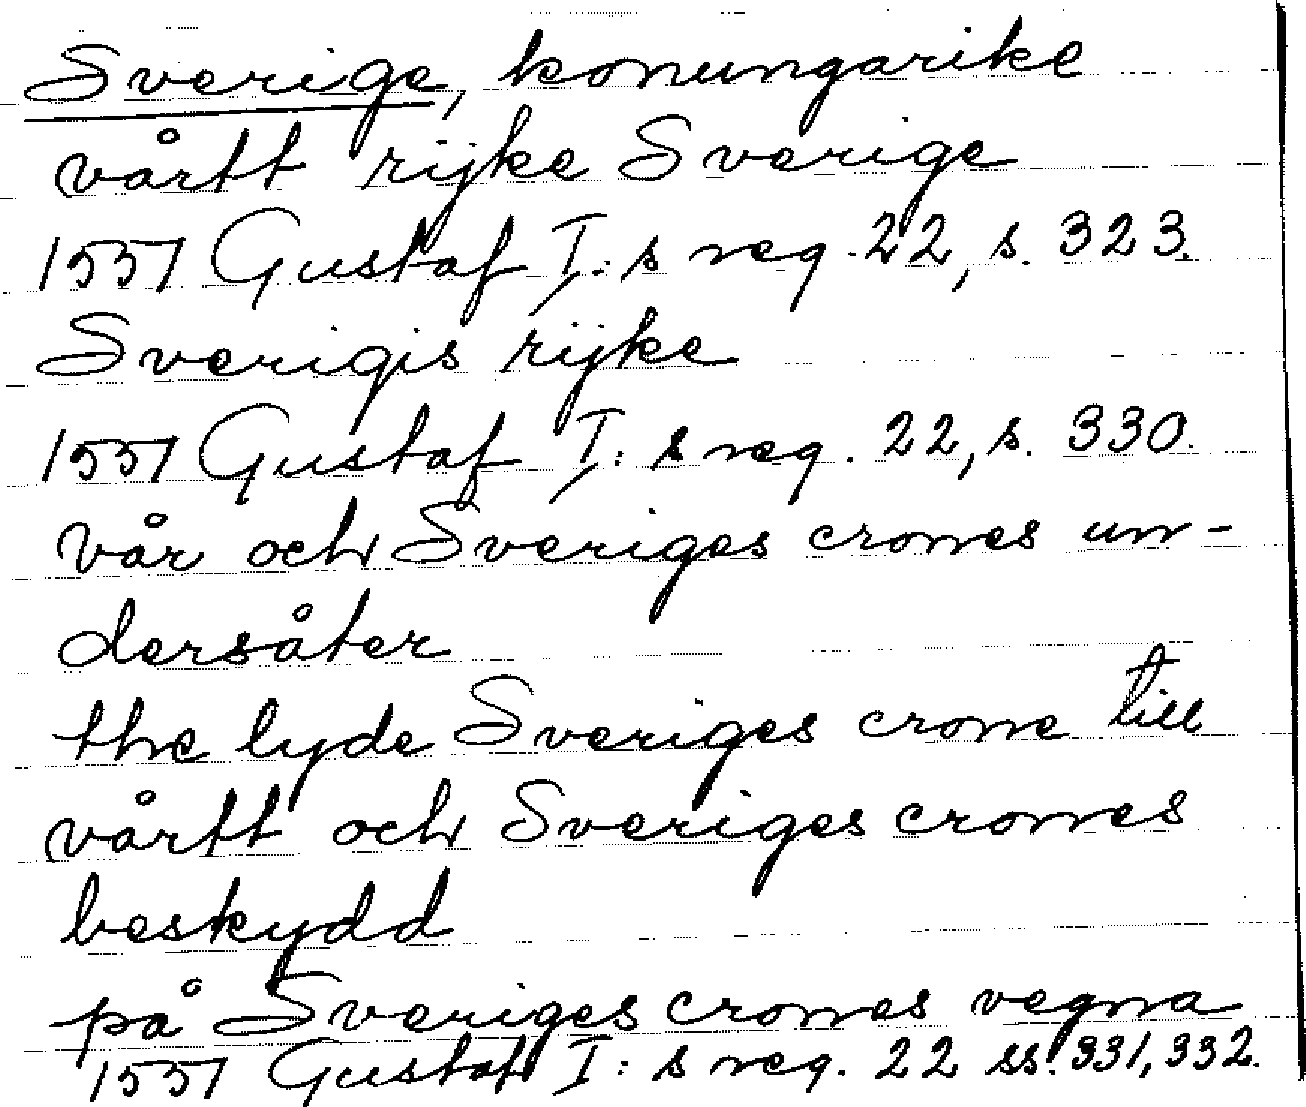 Sverige, konungarike
vårtt rijke Sverige
1551 Gustaf I:s reg. 22, s. 323.
Sverigis rijke
1551 Gustaf I:s reg. 22, s. 330.
vår och Sveriges crones un-
dersåter
the lyde Sveriges crone till
vårtt och Sveriges crones
beskydd
på Sveriges crones vegna
1551 Gustaf I:s reg. 22 ss. 331, 332.